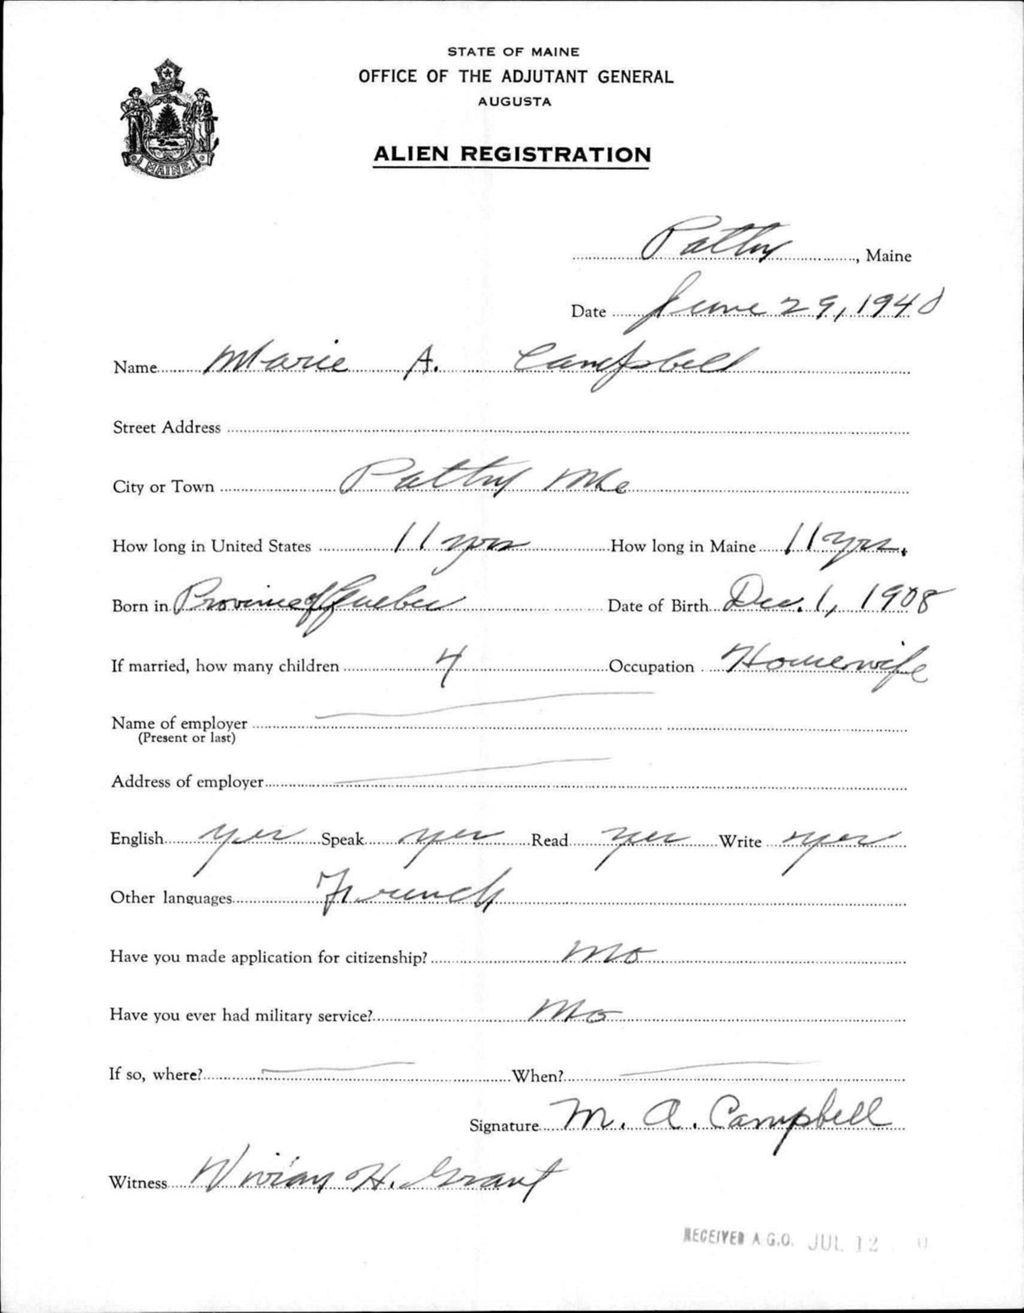 STATE OF MAINE
OFFICE OF THE ADJUTANT GENERAL
AUGUSTA
ALIEN REGISTRATION
MAINE
Patten, Maine
Date June 29, 1940
Name Marie A. Campbell
Street Address
City or Town Patten Me
How long in United States 11 yrs How long in Maine 11 yrs.
Born in Province of Quebec Date of Birth Dec. 1, 1908
If married, how many children 4 Occupation Housewife
Name of employer
(Present or last)
Address of employer
English yes Speak yes Read yes Write yes
Other languages French
Have you made application for citizenship? No
Have you ever had military service? No
If so, where? When?
Signature M. A. Campbell
Witness Vivian H. Grant
RECEIVED A.G.O. JUL 12 0